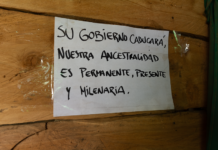 SU GOBIERNO CADUCARÁ,
NUESTRA ANCESTRALIDAD
ES PERMANENTE, PRESENTE
Y MILENARIA.